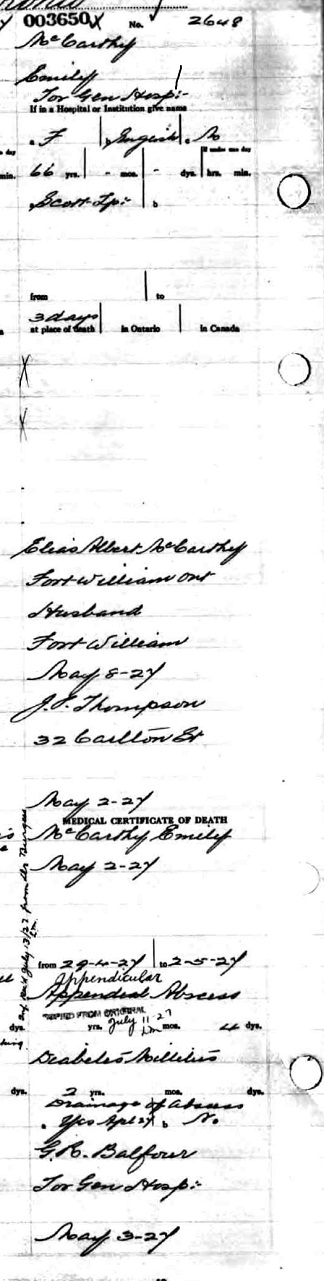 003650 X No. 2648
McCarthy
Emily
Tor Gen Hosp:-
If in a Hospital or Institution give name
a F English S
If under one day
min. 66 yrs. - mos. - dys. hrs. min.
Scott Tp:- b
from to
3 days
at place of death in Ontario in Canada
Elias Albert McCarthy
Fort William Ont
Husband
Fort William
May 8-27
J.P. Thompson
32 Carlton St
May 2-27
MEDICAL CERTIFICATE OF DEATH
McCarthy Emily
May 2-27
from 29-4-27 to 2-5-27
Appendicular
Appendical Abscess
COPIED FROM ORIGINAL
July 11-27
dys. yrs. mos. 4 dys.
Diabetes Millitus
dys. 2 yrs. mos. dys.
Drainage of abscess
a Yes b No
G.R. Balfour
Tor Gen Hosp:-
May 3-27